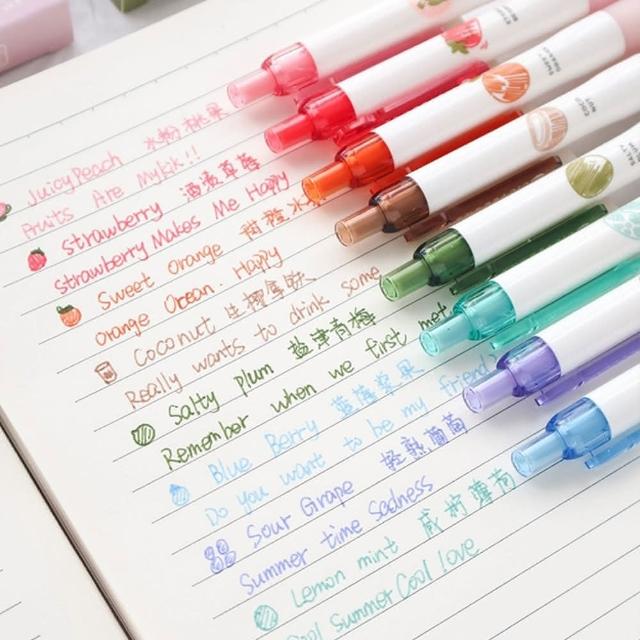 Juicy Peach 水粉桃果
Fruits Are Mykik!!
strawberry 酒渍草莓
strawberry Makes Me Happy
Sweet orange 荷糖冰
orange Orean. Happy
Coconut 生椰厚钦
Really wants to drink some
Salty plum 盐津青梅
Remember when we first met
Blue Berry 蓝莓苹果
Do you want to be my friend
Sour Grape 轻熟葡萄
Summer time Sadness
Lemon mint 咸柠薄荷
Cool Summer Cool love